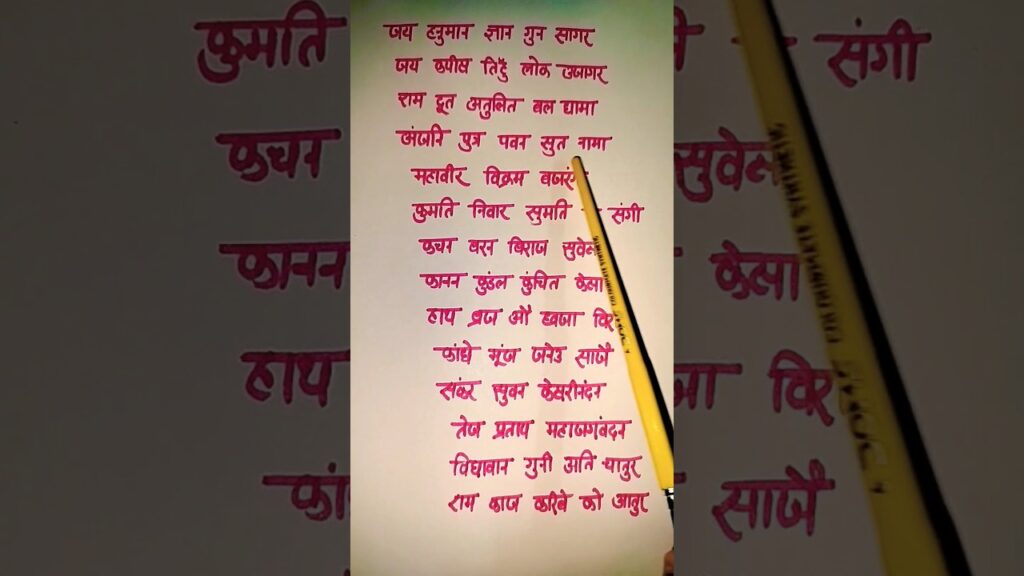 जय हनुमान ज्ञान गुन सागर
जय कपीस तिहुँ लोक उजागर
राम दूत अतुलित बल धामा
अंजनि पुत्र पवन सुत नामा
महावीर विक्रम बजरं
कुमति निवार सुमति संगी
कंचन बरन बिराज सुवे
कानन कुंडल कुंचित केसा
हाथ ब्रज औ ध्वजा विर
कांधे मूंज जनेउ साजै
संकर सुवन केसरीनंदन
तेज प्रताप महाजगबंदन
विद्यावान गुनी अति चातुर
राम काज करिबे को आतुर